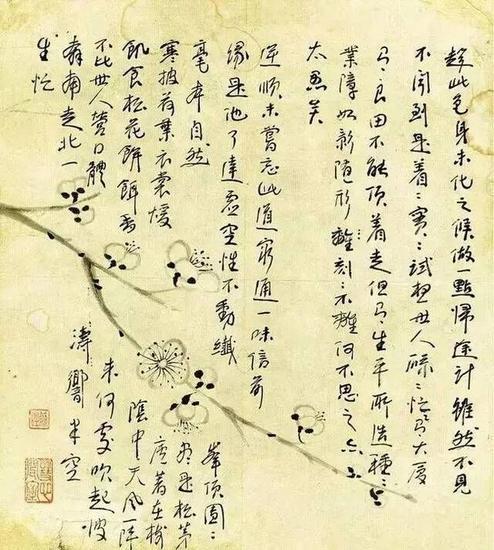 趁此色身未化之候做一點歸途計雖然不見
不聞到是着々實々試想世人碌々忙大廈
良田不能頂着走但生平所造種々
業障如影隨形刻々不離何不思之亦
太愚矣
逆順未嘗忘此道窮通一味信前
緣是他了達虛空性不動纖
毫本自然
寒披荷葉衣裳煖
飢食松花餅餌香
不比世人營口體
奔南走北一
生忙
峯頂團々
盡是松茅
廬著在
陰中天風一陣
來何處吹起波
濤響半空